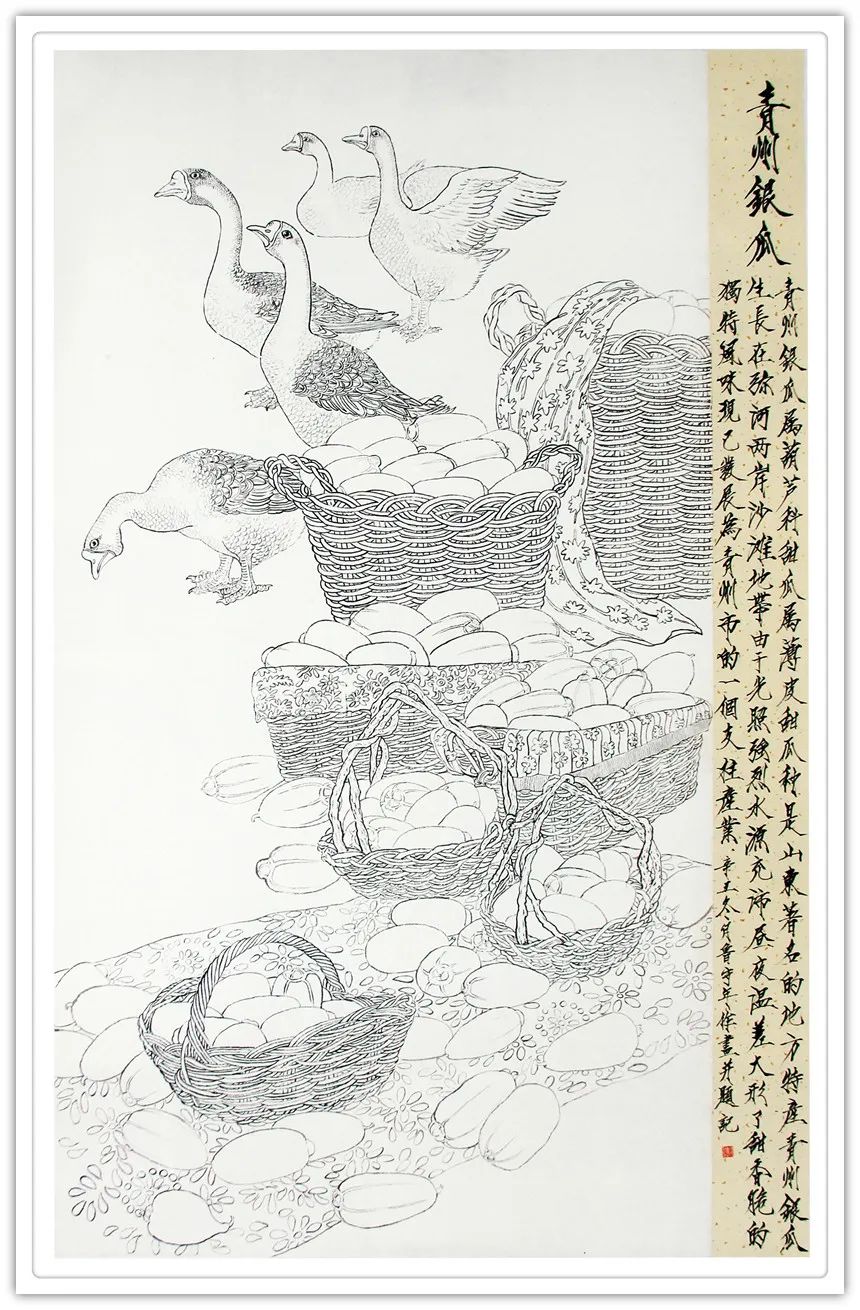 青州銀瓜
青州銀瓜属葫芦科甜瓜属薄皮甜瓜种是山東著名的地方特産青州銀瓜
生長在弥河两岸沙滩地帶由于光照強烈水源充沛昼夜温差大形了甜香脆的
獨特風味現已發展為青州市的一個支柱產業·辛丑冬月晋守年作畫并題記